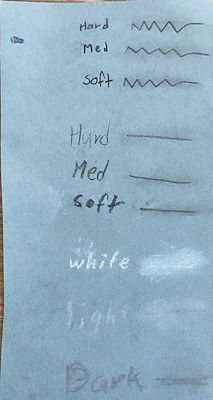 Hard
Med
Soft
Hard
Med
Soft
white
light
Dark